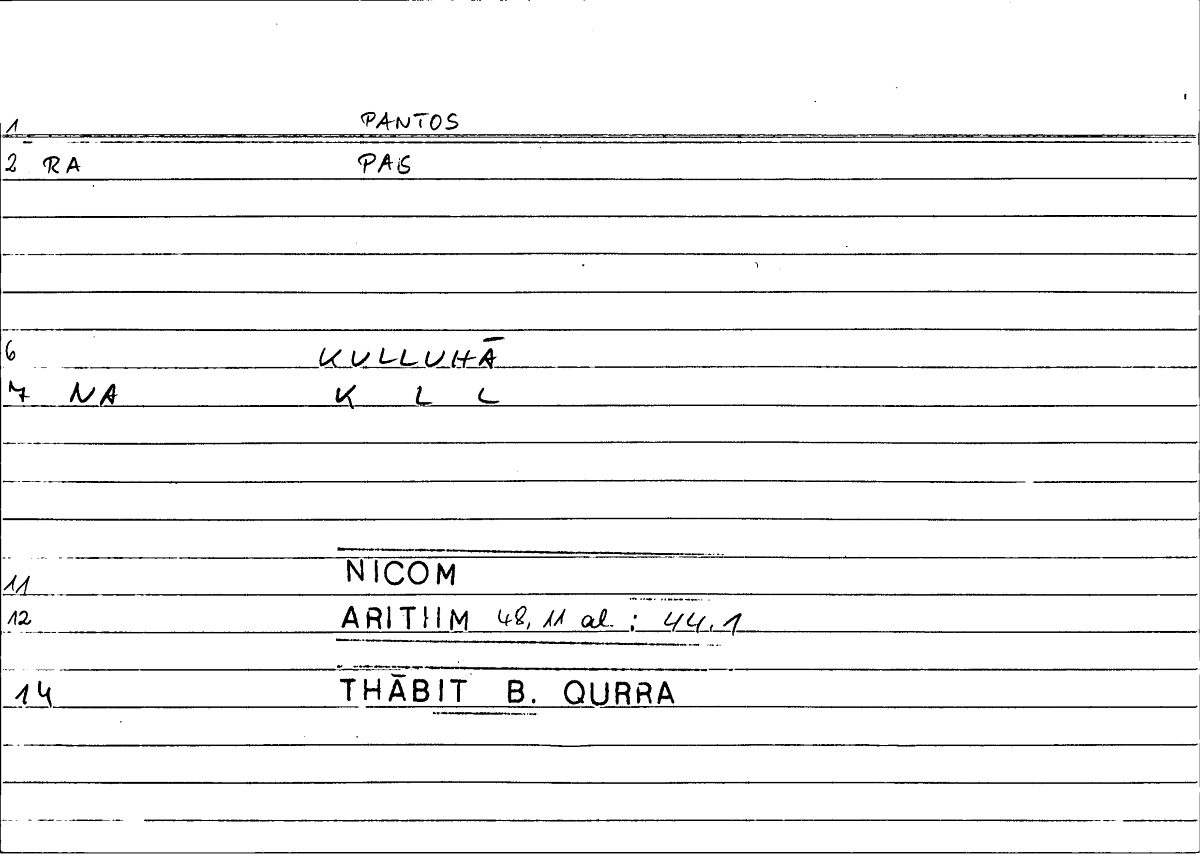 1 PANTOS
2 RA PAS
6 KULLUHĀ
7 NA K L L
11 NICOM
12 ARITHM 48, 11 al. : 44.1
14 THĀBIT B. QURRA